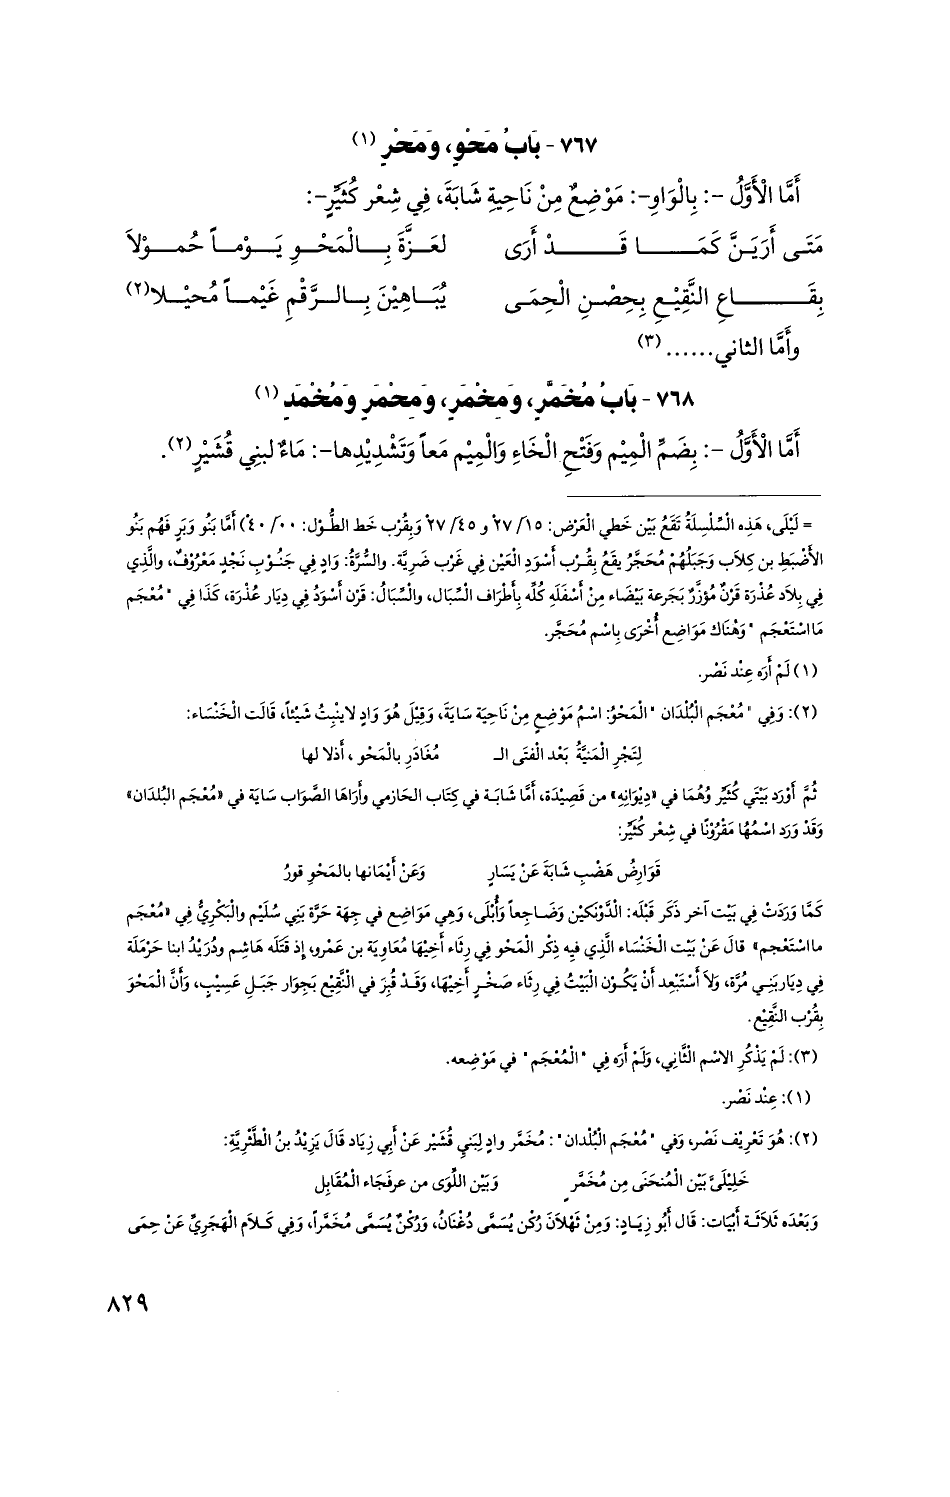 ٧٦٧ - بَابُ مَحْوٍ، وَمَحْرٍ (١)
أَمَّا الْأَوَّلُ -: بِالْوَاوِ-: مَوْضِعٌ مِنْ نَاحِيةِ شَابَةَ، فِي شِعْر كُثَيِّرٍ-:
مَتَى أَرَيَنَّ كَمَا قَدْ أَرَى لعَزَّةَ بِالْمَحْوِ يَوْماً حُمولاَ
بِقَاعِ النَّقِيْعِ بِحِصْنِ الْحِمَى يُبَاهِيْنَ بِالرَّقْمِ غَيْماً مُحيْلا(٢)
وأَمَّا الثاني...... (٣)
٧٦٨ - بَابُ مُخَمَّرٍ، وَمِخْمَرٍ، وَمِحْمَرٍ وَمُحْمَدٍ (١)
أَمَّا الْأَوَّلُ -: بِضَمِّ الْمِيْم وَفَتْحِ الْخَاءِ وَالْمِيْم مَعاً وَتَشْدِيْدِها-: مَاءٌ لبنِي قُشَيْرٍ(٢).
= لَيْلَى، هَذِه السِّلْسِلَةُ تَقَعُ بَيْن خَطي الْعَرْض: ١٥/ ٢٧ و ٤٥/ ٢٧ وَبِقُرْب خط الطُّوْل: ٠٠/ ٤٠) أمَّا بَنُو وَبَرٍ فَهُم بَنُو
الأَضْبَطِ بن كِلاَب وَجَبَلُهُمْ مُحَجَّرُ يقَعُ بِقُرْب أَسْوَدِ الْعَيْن فِي غَرْب ضَرِيَّة. والسُّرَّةُ: وَادٍ فِي جَنُوْبِ نَجْدٍ مَعْرُوْفٌ، والَّذي
فِي بِلاَد عُذْرَة قَرْنٌ مُؤزَّرٌ بَجَرعة بَيْضَاء مِنْ أَسْفَلَهِ كُلِّه بأَطْرَاف السِّبَال، والسِّبَالُ: قَرْن أَسْوَدُ في دِيَار عُذْرَة، كَذَا فِي "مُعْجَم
مَا اسْتَعْجَم" وَهْنَاك مَوَاضِع أُخْرَى بِاسْم مُحَجَّر.
(١) لَمْ أَرَه عِنْد نَصْر.
(٢): وَفِي "مُعْجَم الْبُلْدَان" الْمَحْوُ: اسْمُ مَوْضِعٍ مِنْ نَاحِيَة سَايَة، وَقِيْلَ هُوَ وَادٍ لاَينْبِتُ شَيْئاً، قَالَت الْخَنْسَاء:
لِتَجْرِ الْمَنيَّةُ بَعْد الْفَتَى الـ مُغَادَرِ بالْمَحْو ، أَذلا لها
ثُمَّ أَوْرَد بَيْتَي كُثَيِّر وُهُمَا في «دِيْوَانِهِ» من قَصِيْدَة، أَمَّا شَابَة في كِتَاب الحَازمي وأَرَاهَا الصَّوَاب سَاية في «مُعْجَم البُلدَان»
وَقَدْ وَرَد اسْمُهَا مَقْرُوْنًا في شِعْر كُثَيِّر:
قَوَارِضُ هَضْبِ شَابَةَ عَنْ يَسَارٍ وَعَنْ أَيْمَانها بالمَحْوِ قورُ
كَمَّا وَرَدَتْ فِي بَيْت آخر ذَكَر قَبْلَه: الدَّوْنَكيْن وَضَاجعاً وَأُبْلَى، وَهِي مَوَاضِع في جِهَة حَرَّة بَنِي سُلَيْم والْبَكْرِيُّ فِي «مُعْجَم
ما اسْتَعْجم» قالَ عَنْ بَيْت الْخَنْسَاء الَّذي فِيه ذِكْر الْمَحْو فِي رِثَاء أَخِيْهَا مُعَاوِيَة بن عَمْرو، إِذ قتَلَه هَاشِم ودُرَيْدُ ابنا حَرْمَلة
فِي دِيَار بَنِي مُرَّة، وَلاَ أَسْتَبْعِد أَنْ يَكُوْن الْبَيْتُ فِي رِثَاء صَخْرٍ أَخِيْهَا، وَقَدْ قُبِرَ في النَّقِيْع بِجِوَار جَبَلِ عَسِيْبٍ، وَأَنَّ الْمَحْوَ
بِقُرْب النَّقِيْع.
(٣): لَمْ يَذْكُر الاسْم الثَّاني، وَلَمْ أَرَه فِي "الْمُعْجَم" في مَوْضِعه.
(١): عِنْد نَصْر.
(٢): هُوَ تَعْرِيْف نَصْر، وَفي "مُعْجَم الْبُلْدان": مُخَمَّر وادٍ لِبَنِي قُشَيْر عَنْ أَبي زِيَاد قَالَ يَزِيْدُ بنُ الْطَّثْرِيَّةِ:
خَلِيْلَيَّ بَيْن الْمُنحَنَى مِن مُخَمَّرٍ وَبَيْن اللِّوَى من عرفجَاء الْمُقَابِل
وَبَعْدَه ثَلاَثَة أَبْيَات: قَال أَبُو زِيَادٍ: وَمِنْ ثَهْلاَنَ رُكْن يُسَمَّى دُغْنَانُ، وَرُكْنٌ يُسَمَّى مُخَمَّراً، وَفِي كَلاَم الْهَجَرِيِّ عَنْ حِمَى
٨٢٩